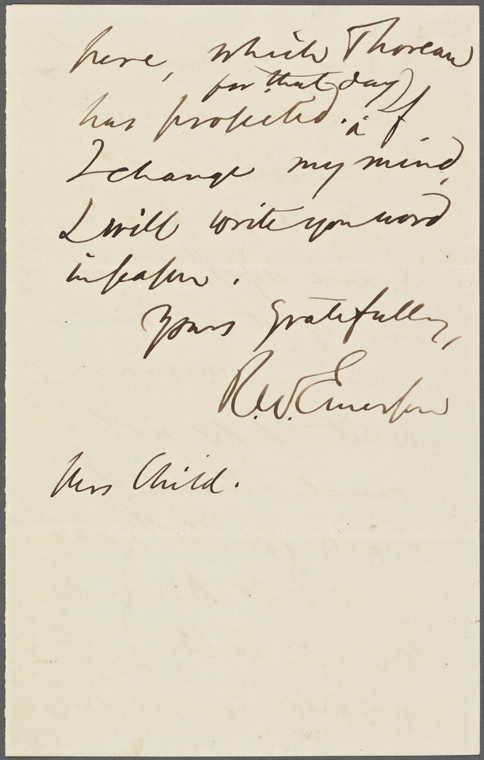 here, which Thoreau
for that day
has projected. If
I change my mind,
I will write you word
in season.
Yours gratefully,
R.W. Emerson
Mrs Child.